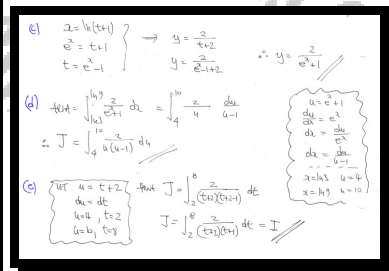 (c) x = ln(t+1)
e^x = t+1
t = e^x - 1
⟹ y = 2/(t+2)
y = 2/(e^x-1+2)
∴ y = 2/(e^x+1)
(d) ∫_{ln3}^{ln9} 2/(e^x+1) dx = ∫_4^10 2/u du/(u-1)
∴ J = ∫_4^10 2/(u(u-1)) du
u = e^x + 1
du/dx = e^x
dx = du/e^x
dx = du/(u-1)
x = ln3 u = 4
x = ln9 u = 10
(e) LET u = t+2
du = dt
u=4, t=2
u=10, t=8
J = ∫_2^8 2/((t+2)(t+2-1)) dt
J = ∫_2^8 2/((t+2)(t+1)) dt = I